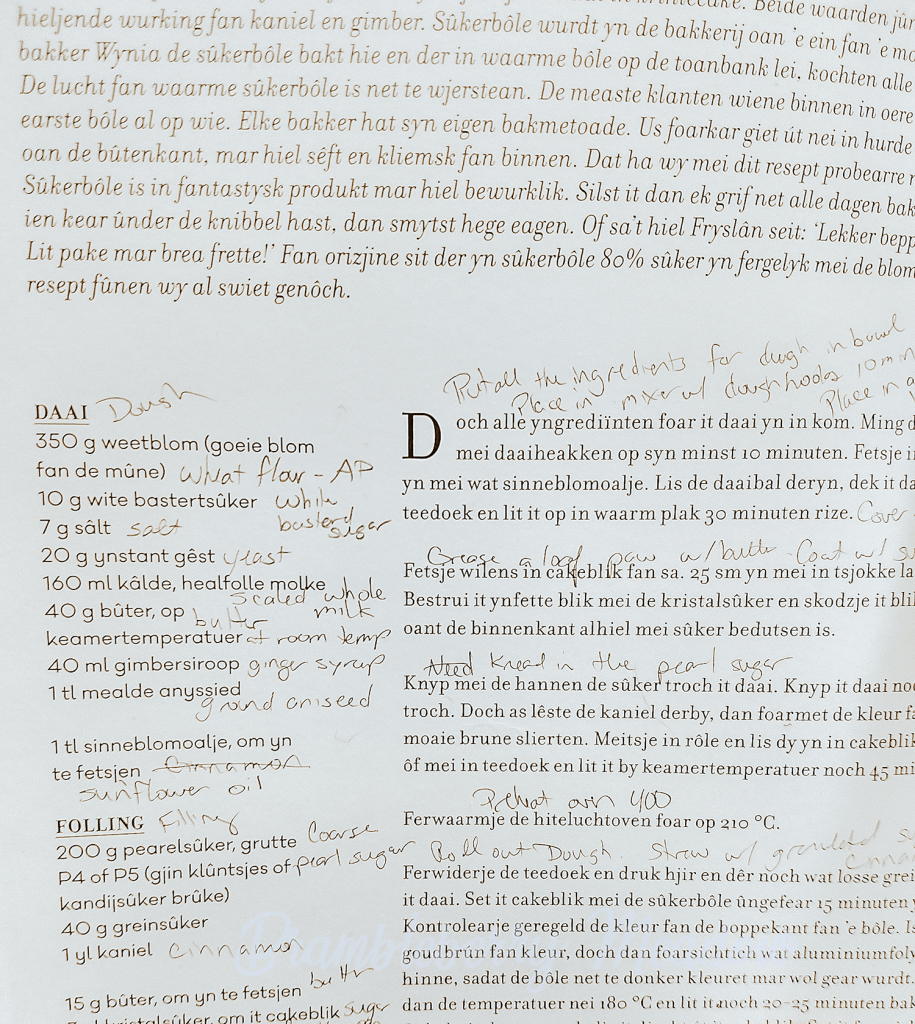 hieljende wurking fan kaniel en gimber. Sûkerbôle wurdt yn de bakkerij oan 'e ein fan 'e
bakker Wynia de sûkerbôle bakt hie en der in waarme bôle op de toanbank lei, kochten alle
De lucht fan waarme sûkerbôle is net te wjerstean. De measte klanten wiene binnen in oere
earste bôle al op wie. Elke bakker hat syn eigen bakmetoade. Us foarkar giet út nei in hurde
oan de bûtenkant, mar hiel séft en kliemsk fan binnen. Dat ha wy mei dit resept probearre
Sûkerbôle is in fantastysk produkt mar hiel bewurklik. Silst it dan ek grif net alle dagen
ien kear ûnder de knibbel hast, dan smytst hege eagen. Of sa't hiel Fryslân seit: 'Lekker
Lit pake mar brea frette!' Fan orizjine sit der yn sûkerbôle 80% sûker yn fergelyk mei de
resept fûnen wy al swiet genôch.
DAAI Dough
350 g weetblom (goeie blom
fan de mûne) wheat flour - AP
10 g wite bastertsûker white
basterd sugar
7 g sâlt salt
20 g ynstant gêst yeast
160 ml kâlde, healfolle molke
scaled whole milk
40 g bûter, op butter
keamertemperatuer at room temp
40 ml gimbersiroop ginger syrup
1 tl mealde anyssied
ground aniseed
1 tl sinneblomoalje, om yn
te fetsjen cinnamon
sunflower oil
FOLLING Filling
200 g pearelsûker, grutte coarse
P4 of P5 (gjin klûntsjes of pearl sugar
kandijsûker brûke)
40 g greinsûker
1 yl kaniel cinnamon
15 g bûter, om yn te fetsjen butter
kristalsûker, om it cakeblik sugar
Put all the ingredients for dough in bowl
Place in mixer w/ dough hooks 10 min
Place in a
Doch alle yngrediïnten foar it daai yn in kom. Ming
mei daaiheakken op syn minst 10 minuten. Fetsje
yn mei wat sinneblomoalje. Lis de daaibal deryn, dek it
teedoek en lit it op in waarm plak 30 minuten rize. Cover
Grease a loaf pan w/ butter. Coat w/
Fetsje wilens in cakeblik fan sa. 25 sm yn mei in tsjokke
Bestrui it ynfette blik mei de kristalsûker en skodzje it
oant de binnenkant alhiel mei sûker bedutsen is.
Need Knead in the pearl sugar
Knyp mei de hannen de sûker troch it daai. Knyp it daai
troch. Doch as lêste de kaniel derby, dan foarmet de kleur
moaie brune slierten. Meitsje in rôle en lis dy yn in cakeblik
ôf mei in teedoek en lit it by keamertemperatuer noch 45
Preheat oven 400
Ferwaarmje de hiteluchtoven foar op 210 °C.
Roll out Dough. Straw w/ granulated
cinna
Ferwiderje de teedoek en druk hjir en dêr noch wat losse
it daai. Set it cakeblik mei de sûkerbôle ûngefear 15 minuten
Kontrolearje geregeld de kleur fan de boppekant fan 'e bôle.
goudbrún fan kleur, doch dan foarsichtich wat
hinne, sadat de bôle net te donker kleuret mar wol gear wurdt.
dan de temperatuer nei 180 °C en lit it noch 20-25 minuten